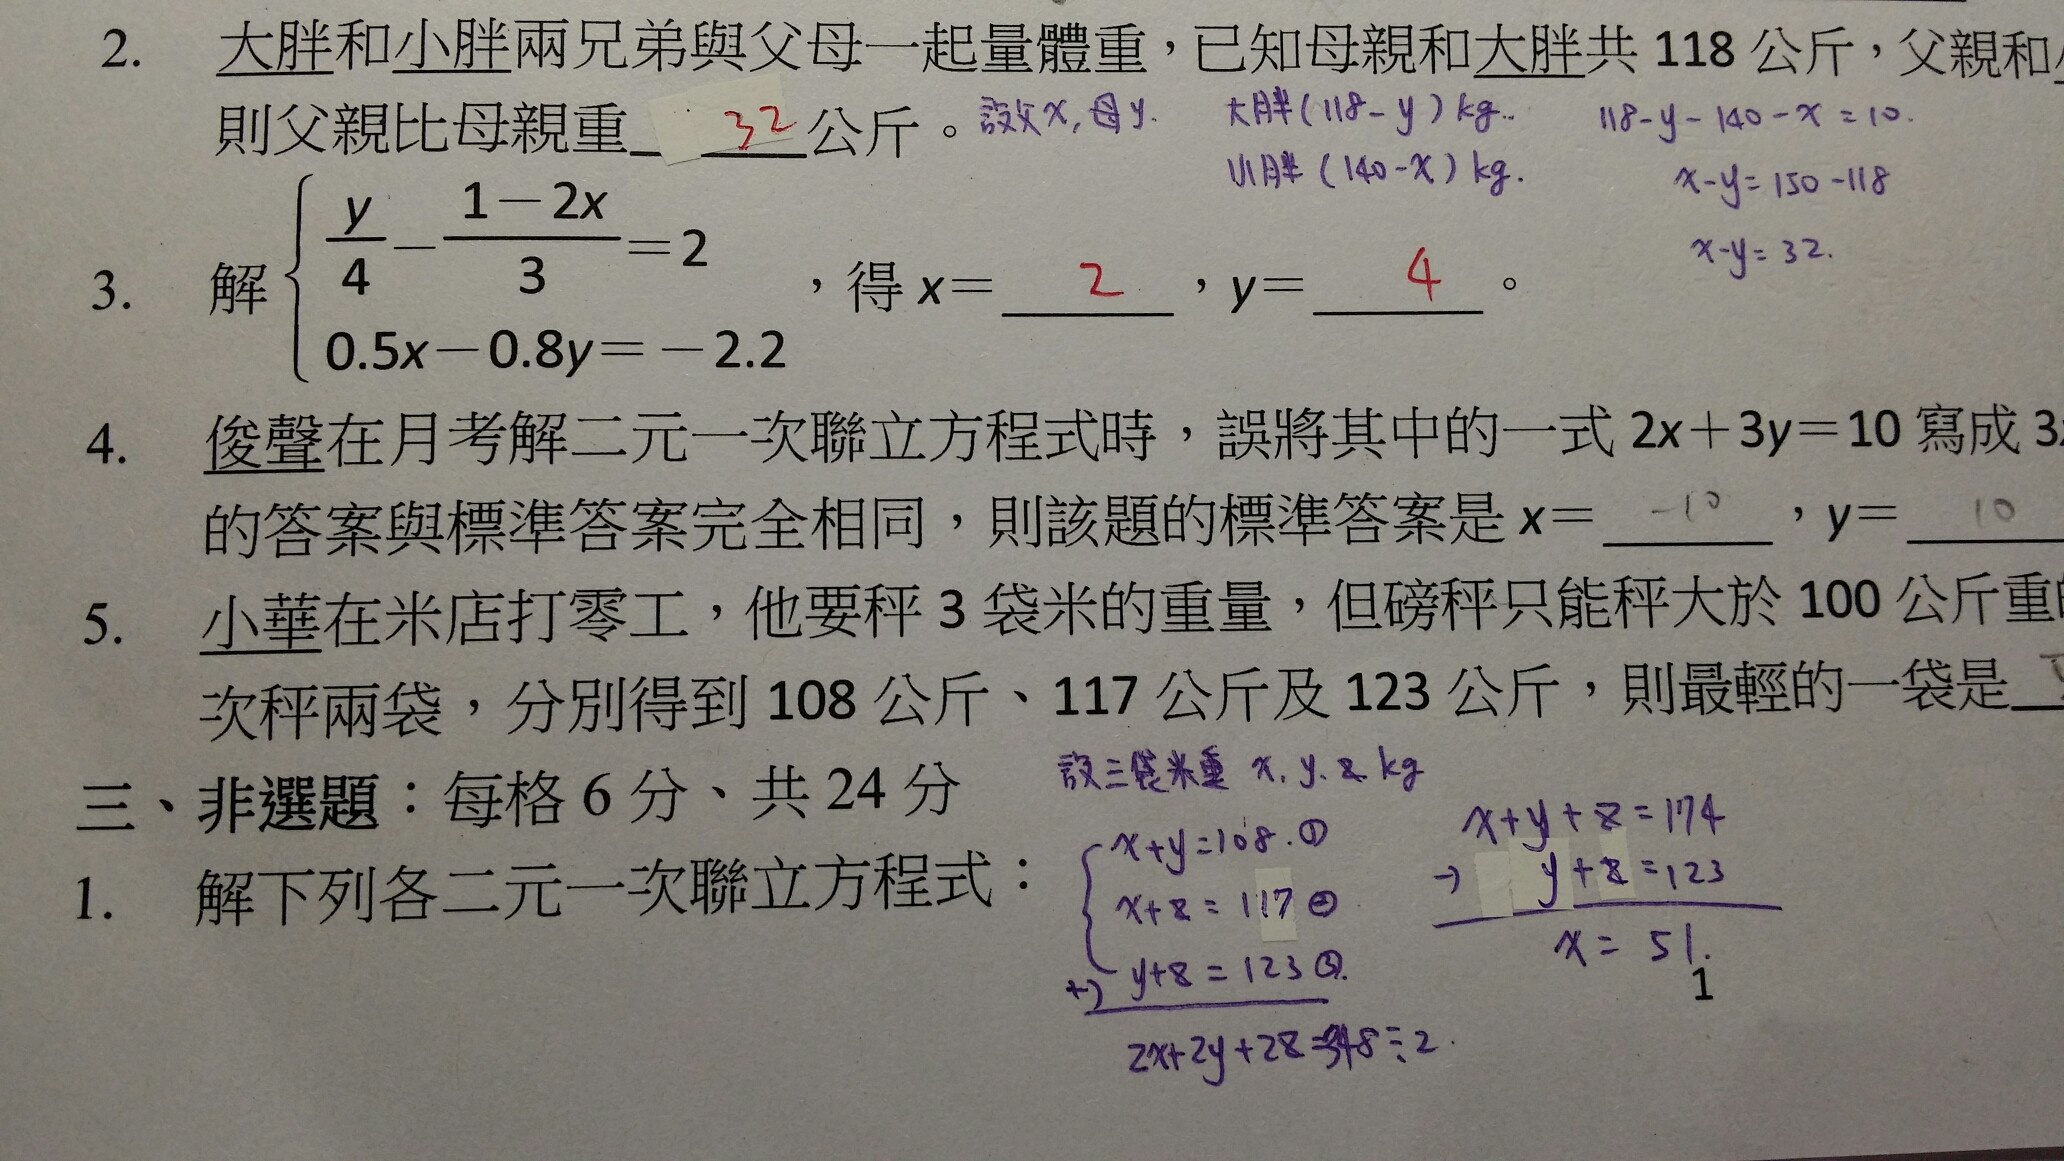 2. 大胖和小胖兩兄弟與父母一起量體重，已知母親和大胖共 118 公斤，父親和
則父親比母親重 32 公斤。 設父x, 母y. 大胖(118-y) kg.. 118-y-140-x=10.
小胖(140-x) kg. x-y=150-118
x-y=32.
3. 解 { y/4 － (1－2x)/3 ＝2
0.5x－0.8y＝－2.2 ，得 x＝ 2 ，y＝ 4 。
4. 俊聲在月考解二元一次聯立方程式時，誤將其中的一式 2x＋3y＝10 寫成 3
的答案與標準答案完全相同，則該題的標準答案是 x＝ -10 ，y＝ 10
5. 小華在米店打零工，他要秤 3 袋米的重量，但磅秤只能秤大於 100 公斤重
次秤兩袋，分別得到 108 公斤、117 公斤及 123 公斤，則最輕的一袋是
設三袋米重 x. y. z kg
三、非選題：每格 6 分、共 24 分
1. 解下列各二元一次聯立方程式：
x+y=108. ①
x+z=117 ②
+) y+z=123 ③.
2x+2y+2z=348÷2.
x+y+z=174
-) y+z=123
x=51.
1